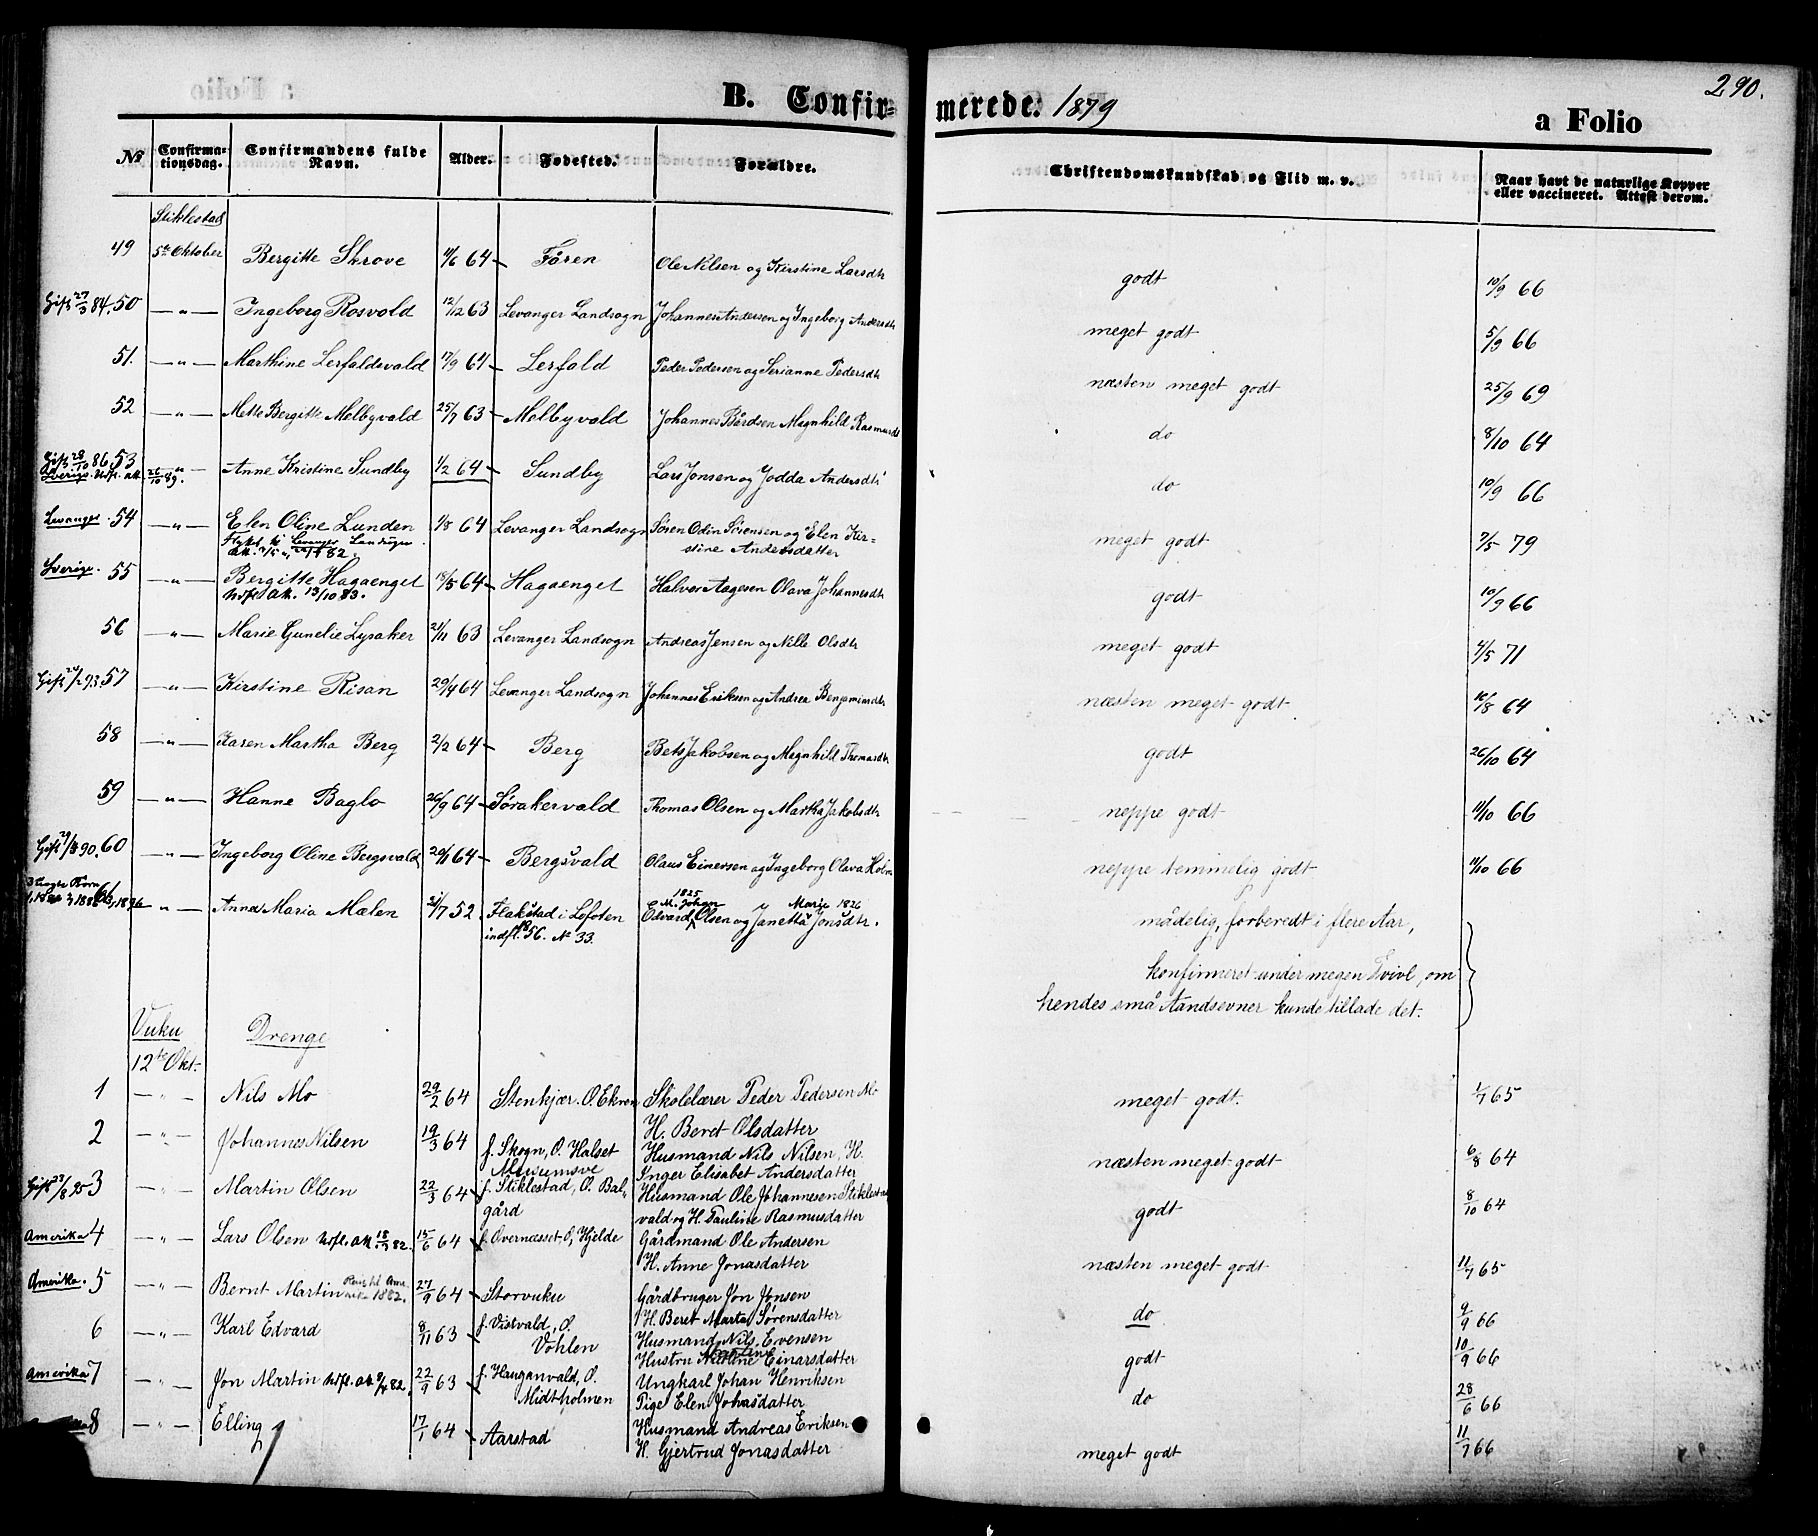 290.
B. Confirmerede. 1879
a Folio
No Confirmationsdag. Confirmandens fulde Navn. Alder. Fødested. Forældre. Christendomskundskab og Flid m. v. Naar havt de naturlige Kopper eller vaccineret. Attest derom.
Stiklestad
49 5te Oktober Bergitte Skrove 64 Faren Ole Nilsen og Kirstine Larsdtr godt 10/9 66
Gift 27/3 84. 50 — " — Ingeborg Rosvold 12/12 63 Levanger Landsogn Johannes Andersen og Ingeborg Andersdtr meget godt 5/9 66
51. — " — Marthine Lerfaldsvald 17/9 64 Lerfald Peder Pedersen og Serianne Pedersdtr næsten meget godt 25/9 69
52 — " — Mette Bergitte Melbyvald 25/7 63 Melbyvald Johannes Bårdsen Magnhild Rasmusdt do 8/10 64
Gift 28/10 86. 53 — " — Anne Kristine Sundby 1/2 64 Sundby Lars Jonsen og Jodda Andersdtr do 10/9 66
Sverige. Udfl. att. 26/10 89.
Levanger. 54 — " — Elen Oline Lunden 1/8 64 Levanger Landsogn Søren Odin Sørensen og Elen Kirstine Andersdatter meget godt 7/5 79
Flyttet til Levanger Landsogn. att. 1882.
Sverige. 55 " — Bergitte Hagaenget 18/5 64 Hagaenget Halvor Aagesen Olava Johannesdtr godt 10/9 66
Udfl. att. 13/10 83.
56 — " — Marie Gunelie Lysaker 21/11 63 Levanger Landsogn Andreas Jensen og Nille Olsdtr meget godt 4/5 71
Gift 93. 57 — " — Kirstine Risan 29/4 64 Levanger Landsogn Johannes Eriksen og Andrea Benjaminsdtr næsten meget godt 16/8 64
58 — " — Karen Martha Berg 2/2 64 Berg Bets Jakobsen og Magnhild Thomasdtr godt 26/10 64
59 — " — Hanne Baglo 26/9 64 Sørakervald Thomas Olsen og Martha Jakobsdtr neppe godt 11/10 66
Gift 90. 60 — " — Ingeborg Oline Bergsvald 20/11 64 Bergsvald Olaus Einersen og Ingeborg Olava Holm neppe temmelig godt 11/10 66
61 — " — Anna Maria Mælen 21/7 52 Flakstad i Lofoten Edvard Olsen og Janetta Jonsdtr. mådelig, forberedt i flere Aar,
indfl. 56. No 33. 1825 M. Johan Marie 1826
konfirmeret under megen Tvivl, om
hendes små Aandsevner kunde tillade det.
Vuku Drenge
12te Okt.
1 — " — Nils Mo 29/2 64 Stenkjær. O. Ekren Skolelærer Peder Pedersen Mo meget godt. 1/7 65
H. Beret Olsdatter
2 — " — Johannes Nilsen 19/3 64 f. Skogn, O. Halset Husmand Nils Nilsen, H. næsten meget godt 6/8 64
Inger Elisabet Andersdatter
Gift 95 3 — " — Martin Olsen 22/3 64 f. Stiklestad, O. Balgård Husmand Ole Johannesen Stiklestad godt 8/10 64
vald og H. Pauline Rasmusdatter
Amerika 4 — " — Lars Olsen Udfl. att. 82. 15/6 64 f. Overnæsset O. Hjelde Gårdmand Ole Andersen næsten meget godt 11/7 65
H. Anne Jonasdatter
Amerika. 5 — " — Bernt Martin Reist til Amerika 1882. 27/9 64 Storvuku Gårdbruger Jon Jonsen do 9/9 66
H. Beret Marta Sørensdatter
6 — " — Karl Edvard 8/11 63 f. Vistvald, O. Vohlen Husmand Nils Evensen godt 10/9 66
Hustru Einarsdatter
Amerika 7 — " — Jon Martin Udfl. att. 82. 22/9 63 f. Hauganvald, O. Midtholmen Ungkarl Johan Henriksen do 28/6 66
Pige Elen Johasdatter
8 — " — Elling 17/1 64 Aarstad Husmand Andreas Eriksen meget godt 11/7 66
H. Gjertrud Jonasdatter